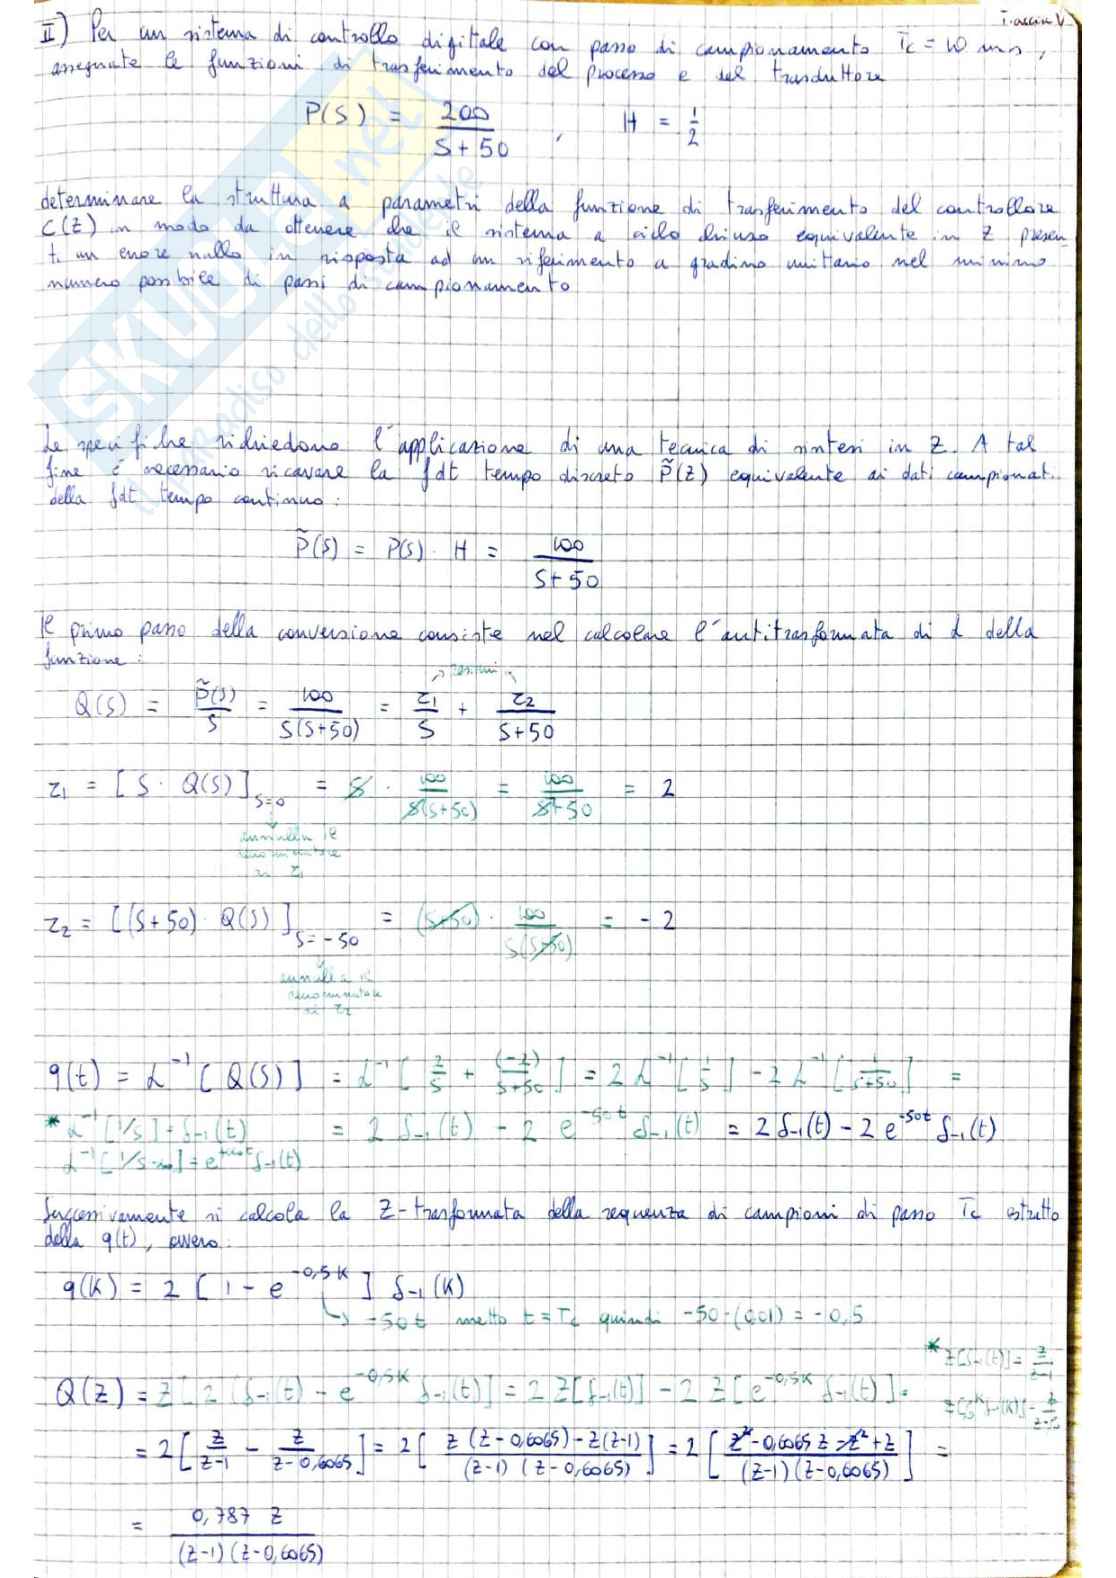 Traccia V
II) Per un sistema di controllo digitale con passo di campionamento Tc = 10 ms,
assegnate le funzioni di trasferimento del processo e del trasduttore
P(S) = 200 / (S+50) , H = 1/2
determinare la struttura a parametri della funzione di trasferimento del controllore
C(Z) in modo da ottenere che il sistema a ciclo chiuso equivalente in Z presen
ti un errore nullo in risposta ad un riferimento a gradino unitario nel minimo
numero possibile di passi di campionamento
Le specifiche richiedono l'applicazione di una tecnica di sintesi in Z. A tal
fine è necessario ricavare la fdt tempo discreto P̃(Z) equivalente ai dati campionati
della fdt tempo continuo:
P̃(S) = P(S) · H = 100 / (S+50)
Il primo passo della conversione consiste nel calcolare l'antitrasformata di L della
funzione:
→ residui
Q(S) = P̃(S)/S = 100 / (S(S+50)) = r1/S + r2/(S+50)
r1 = [S · Q(S)]S=0 = S · 100 / (S(S+50)) = 100 / (S+50) = 2
annulla il
denominatore
di r1
r2 = [(S+50) · Q(S)]S=-50 = (S+50) · 100 / (S(S+50)) = -2
annulla il
denominatore
di r2
q(t) = L⁻¹[Q(S)] = L⁻¹[2/S + (-2)/(S+50)] = 2 L⁻¹[1/S] - 2 L⁻¹[1/(S+50)] =
* L⁻¹[1/S] = δ-1(t) = 2 δ-1(t) - 2 e^(-50t) δ-1(t) = 2 δ-1(t) - 2 e^(-50t) δ-1(t)
Successivamente si calcola la Z-trasformata della sequenza di campioni di passo Tc estratto
della q(t), ovvero:
q(K) = 2 [1 - e^(-0,5K)] δ-1(K)
→ -50t metto t = Tc quindi -50·(0,01) = -0,5
* Z[δ-1(t)] = Z/(Z-1)
Q(Z) = Z[2(δ-1(t) - e^(-0,5K) δ-1(t)] = 2 Z[δ-1(t)] - 2 Z[e^(-0,5K) δ-1(t)] =
= 2 [Z/(Z-1) - Z/(Z-0,6065)] = 2 [(Z(Z-0,6065) - Z(Z-1)) / ((Z-1)(Z-0,6065))] = 2 [(Z² - 0,6065 Z - Z² + Z) / ((Z-1)(Z-0,6065))] =
= 0,787 Z / ((Z-1)(Z-0,6065))